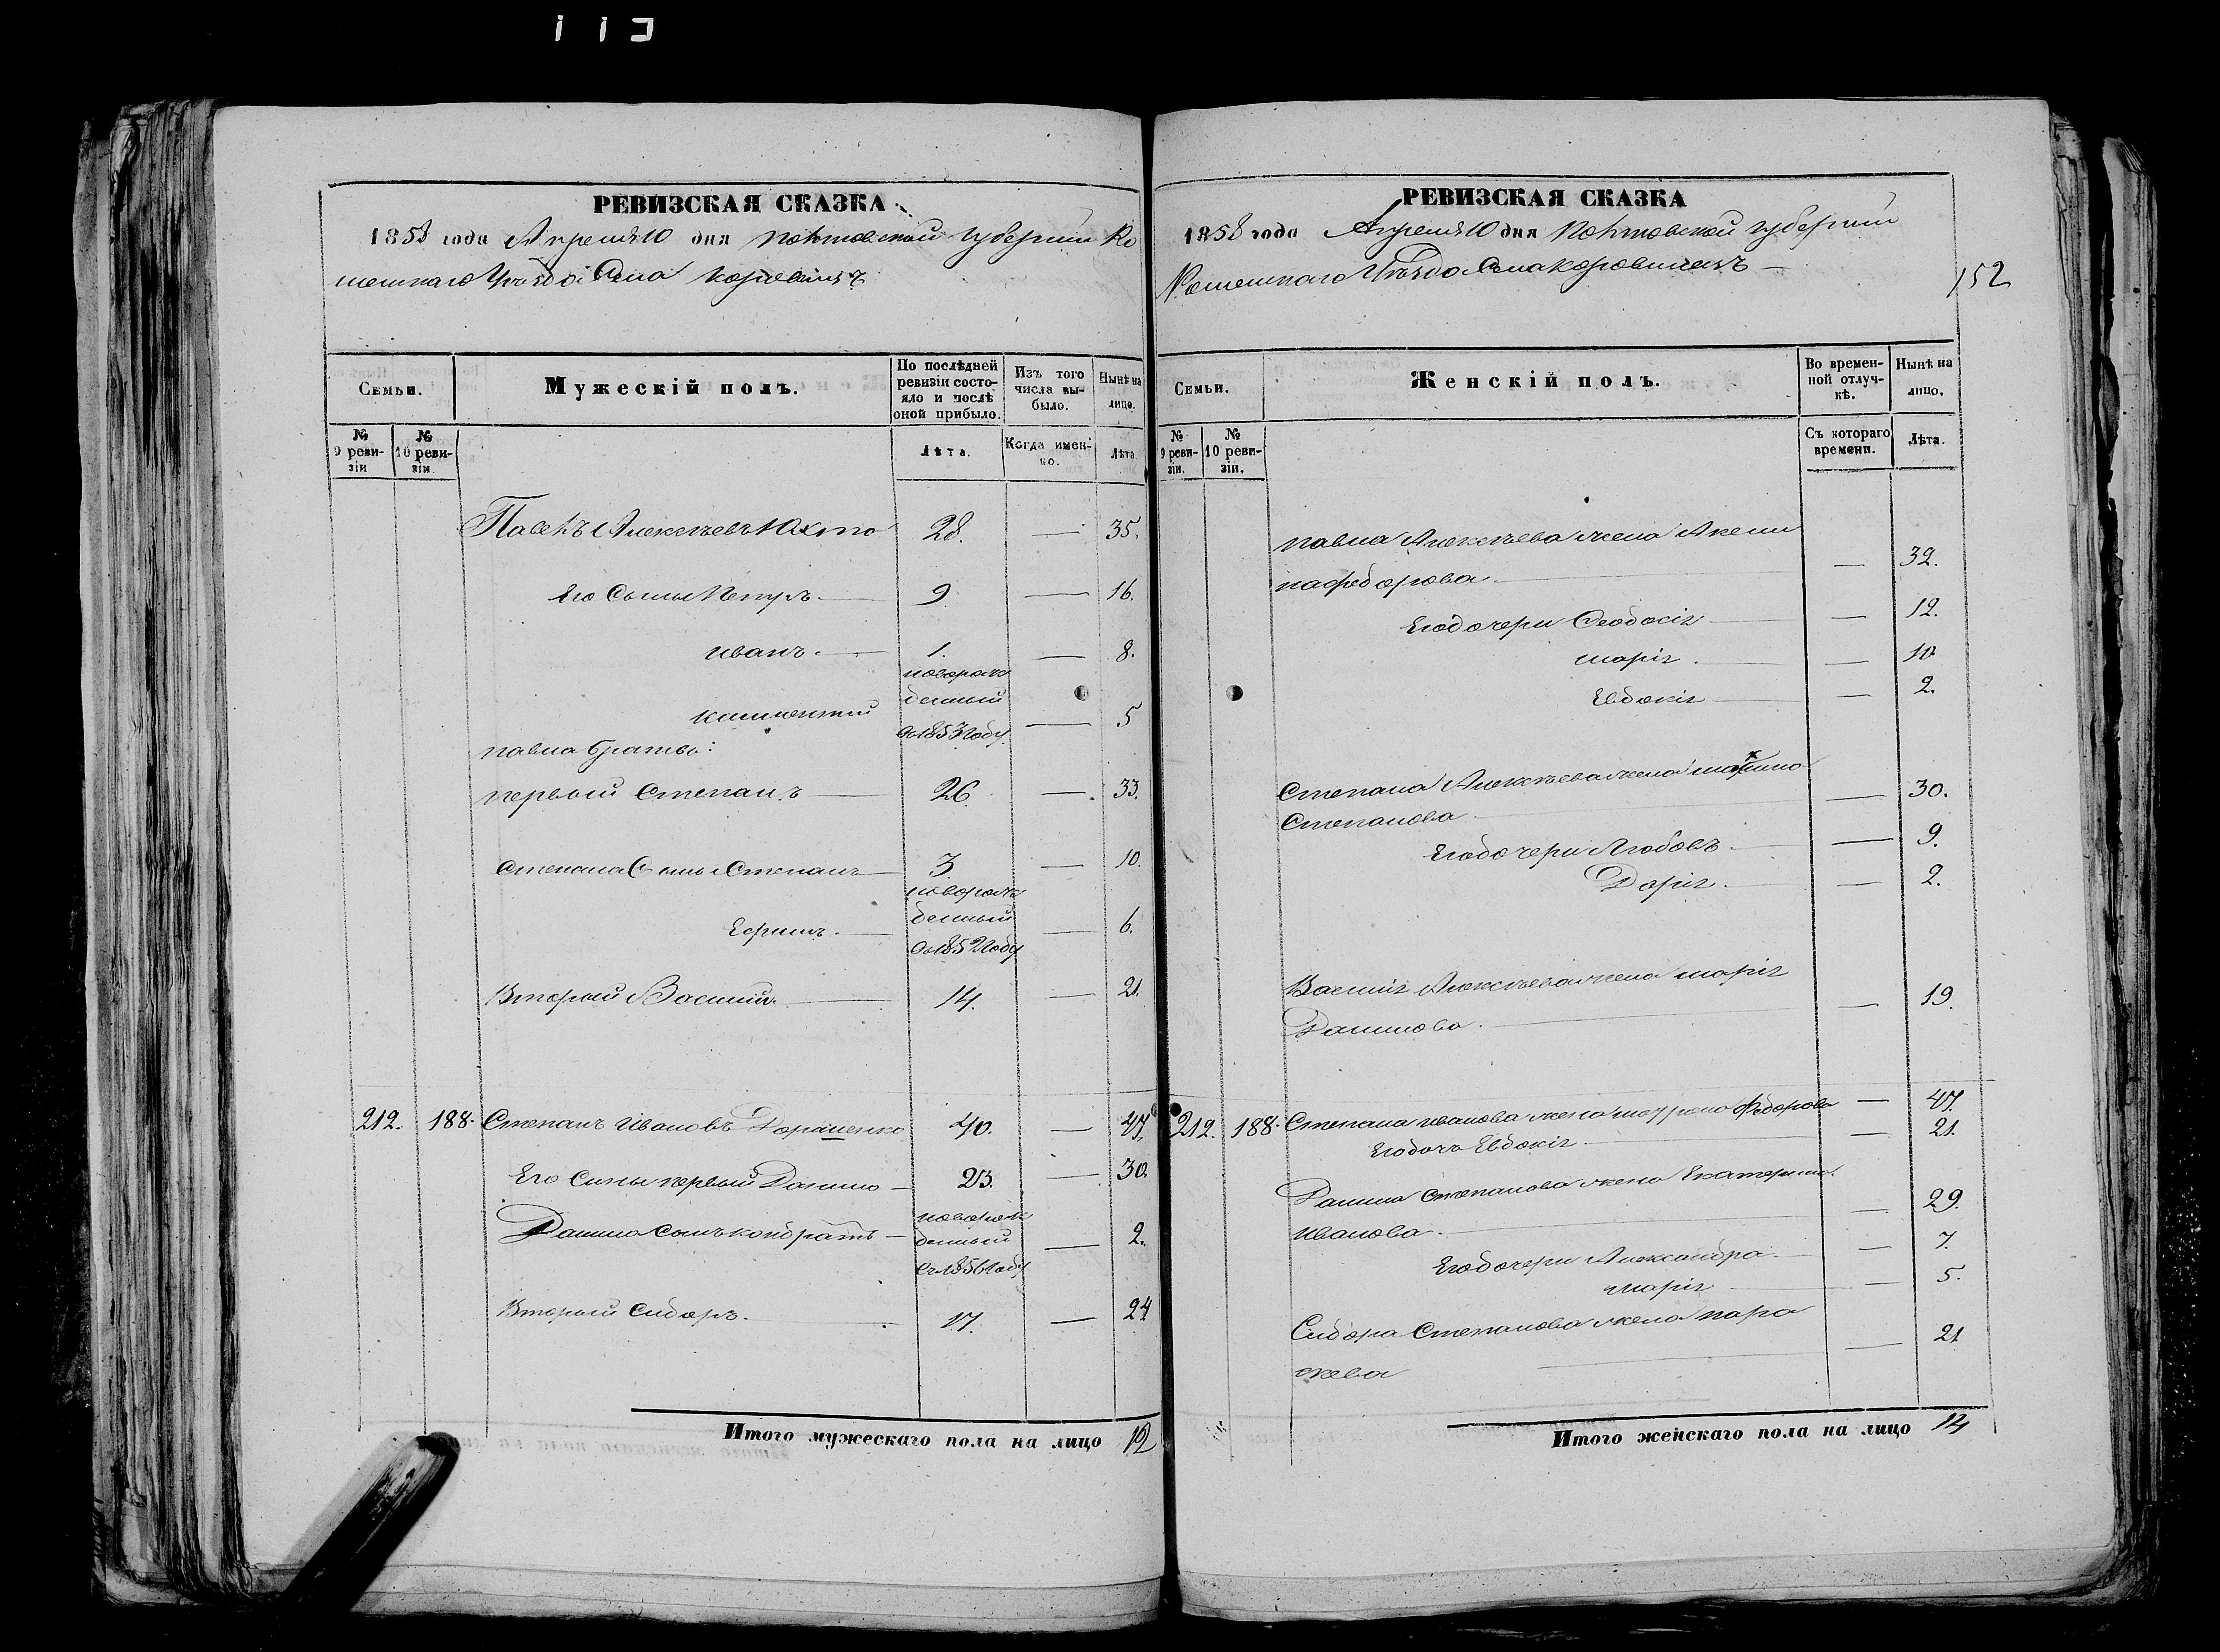 РЕВИЗСКАЯ СКАЗКА
1858 года Апреля 10 дня Полтавской Губернии Ко
Уѣзда Села
Семьи.
Мужескій полъ.
По послѣдней ревизіи состояло и послѣ оной прибыло.
Изъ того числа выбыло.
Нынѣ на лицо.
№ 9 ревизіи
№ 10 ревизіи
Лѣта.
Когда именно.
Лѣта
Павелъ Алексѣевъ Юхно 28. — 35.
Его Сыны Петръ 9. — 16.
Иванъ 1. — 8.
Климентий новорожденный въ 1853 Году — 5
Павла братья:
первый Степанъ 26. — 33.
Степана Сыны Степанъ 3. — 10.
новорожденный въ 1852 Году — 6.
Вторый Василий 14. — 21.
212. 188. Степанъ Ивановъ 40. — 47.
Его Сыны первый Данило 23. — 30.
Данила сынъ Кондратъ новорожденный въ 1856 Году — 2.
Вторый Сидоръ 17. — 24
Итого мужескаго пола на лицо 12
РЕВИЗСКАЯ СКАЗКА
1858 года Апреля 10 дня Полтавской Губернии
Уѣзда Села
152
Семьи.
Женскій полъ.
Во временной отлучкѣ.
Нынѣ на лицо.
№ 9 ревизіи.
№ 10 ревизіи.
Съ котораго времени.
Лѣта.
Павла Алексѣева жена Акели
на Федорова — 32.
Его дочери Феодосія — 12.
Марія — 10
Евдокія — 2.
Степана Алексѣева жена
Степанова — 30.
Его дочери Любовъ — 9.
Дарія — 2.
Василія Алексѣева жена Марія
Данилова — 19.
212. 188. Степана Иванова жена Федорова — 47.
Его дочь Евдокія — 21.
Данила Степанова жена Екатерина
Иванова — 29.
Его дочери Александра — 7.
Марія — 5.
Сидора Степанова жена Пара
скева — 21
Итого женскаго пола на лицо 14